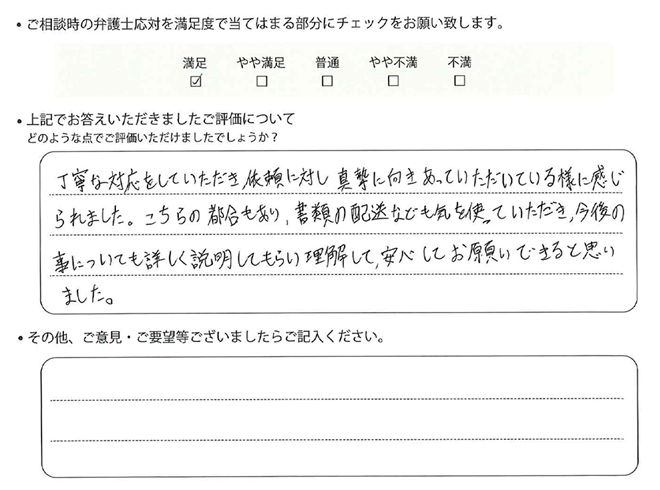 ・ご相談時の弁護士応対を満足度で当てはまる部分にチェックをお願い致します。
満足 やや満足 普通 やや不満 不満
☑ □ □ □ □
・上記でお答えいただきましたご評価について
どのような点でご評価いただけましたでしょうか？
丁寧な対応をしていただき、依頼に対し真摯に向きあっていただいている様に感じ
られました。こちらの都合もあり、書類の配送なども気を使っていただき、今後の
事についても詳しく説明してもらい理解して、安心してお願いできると思い
ました。
・その他、ご意見・ご要望等ございましたらご記入ください。